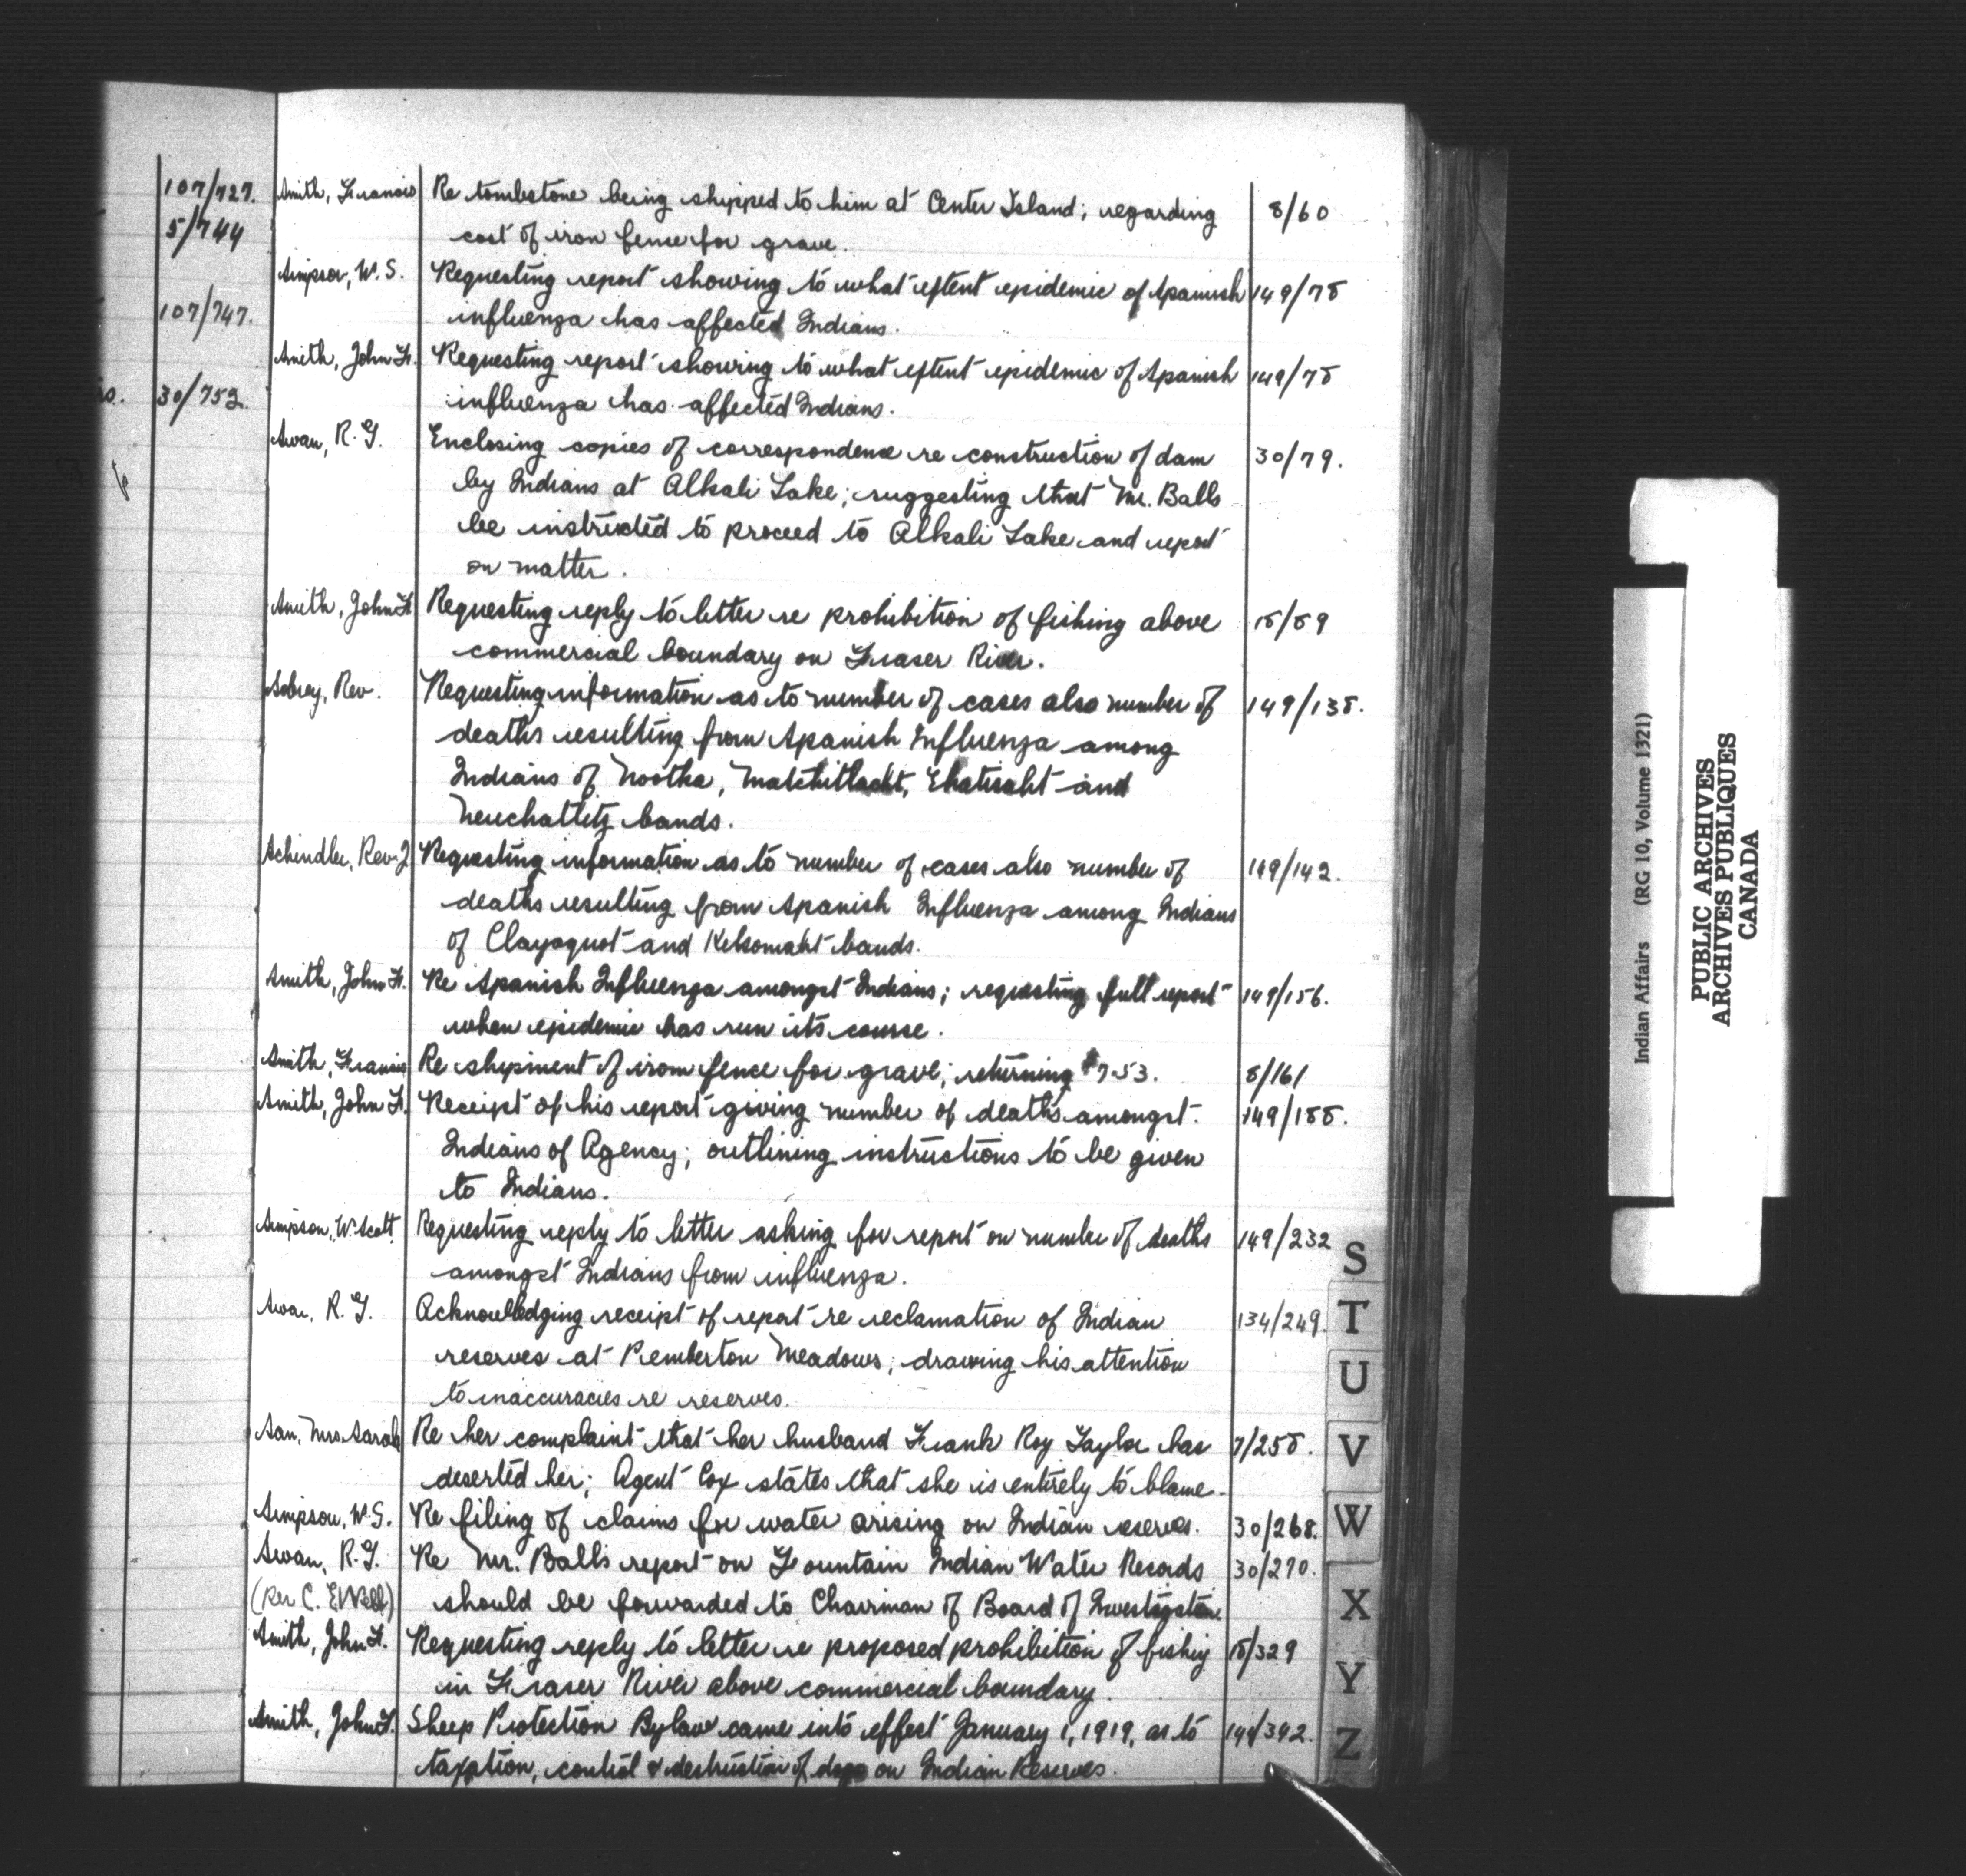 107/727.
5/744
107/747.
30/752.
Smith, Francis Re tombstone being shipped to him at Center Island; regarding 8/60
cost of iron fence for grave.
Simpson, W. S. Requesting report showing to what extent epidemic of Spanish 149/78
influenza has affected Indians.
Smith, John F. Requesting report showing to what extent epidemic of Spanish 149/78
influenza has affected Indians.
Swan, R. G. Enclosing copies of correspondence re construction of dam 30/79.
by Indians at Alkali Lake; suggesting that Mr. Balls
be instructed to proceed to Alkali Lake and report
on matter.
Smith, John F. Requesting reply to letter re prohibition of fishing above 18/89
commercial boundary on Fraser River.
Sobry, Rev. Requesting information as to number of cases also number of 149/138.
deaths resulting from Spanish Influenza among
Indians of Nootka, Matchitlacht, Ehatisaht and
Neuchatletz bands.
Schindler, Rev. J Requesting information as to number of cases also number of 149/142.
deaths resulting from Spanish Influenza among Indians
of Clayoquot and Kelsomaht bands.
Smith, John F. Re Spanish Influenza amongst Indians; requesting full report 149/156.
when epidemic has run its course.
Smith, Francis Re shipment of iron fence for grave; returning $7.53. 8/161
Smith, John F. Receipt of his report giving number of deaths amongst 149/188.
Indians of Agency; outlining instructions to be given
to Indians.
Simpson, W. Scott Requesting reply to letter asking for report on number of deaths 149/232
amongst Indians from influenza.
Swan, R. G. Acknowledging receipt of report re reclamation of Indian 134/249.
reserves at Pemberton Meadows; drawing his attention
to inaccuracies re reserves.
Sam, Mrs. Sarah Re her complaint that her husband Frank Roy Taylor has 7/258.
deserted her; Agent Cox states that she is entirely to blame.
Simpson, W. S. Re filing of claims for water arising on Indian reserves. 30/268.
Swan, R. G. Re Mr. Balls report on Fountain Indian Water Records 30/270.
(Rev C. E. ) should be forwarded to Chairman of Board of Investigation
Smith, John F. Requesting reply to letter re proposed prohibition of fishing 18/329
in Fraser River above commercial boundary.
Smith, John F. Sheep Protection Bylaw came into effect January 1, 1919, as to /342.
taxation, control & destruction of dogs on Indian Reserves.
S
T
U
V
W
X
Y
Z
Indian Affairs (RG 10, Volume 1321)
PUBLIC ARCHIVES
ARCHIVES PUBLIQUES
CANADA